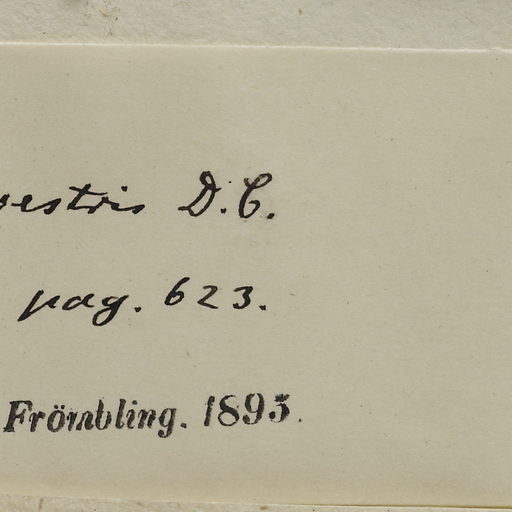 vestris D.C.
pag. 623.
Frömbling. 1895.